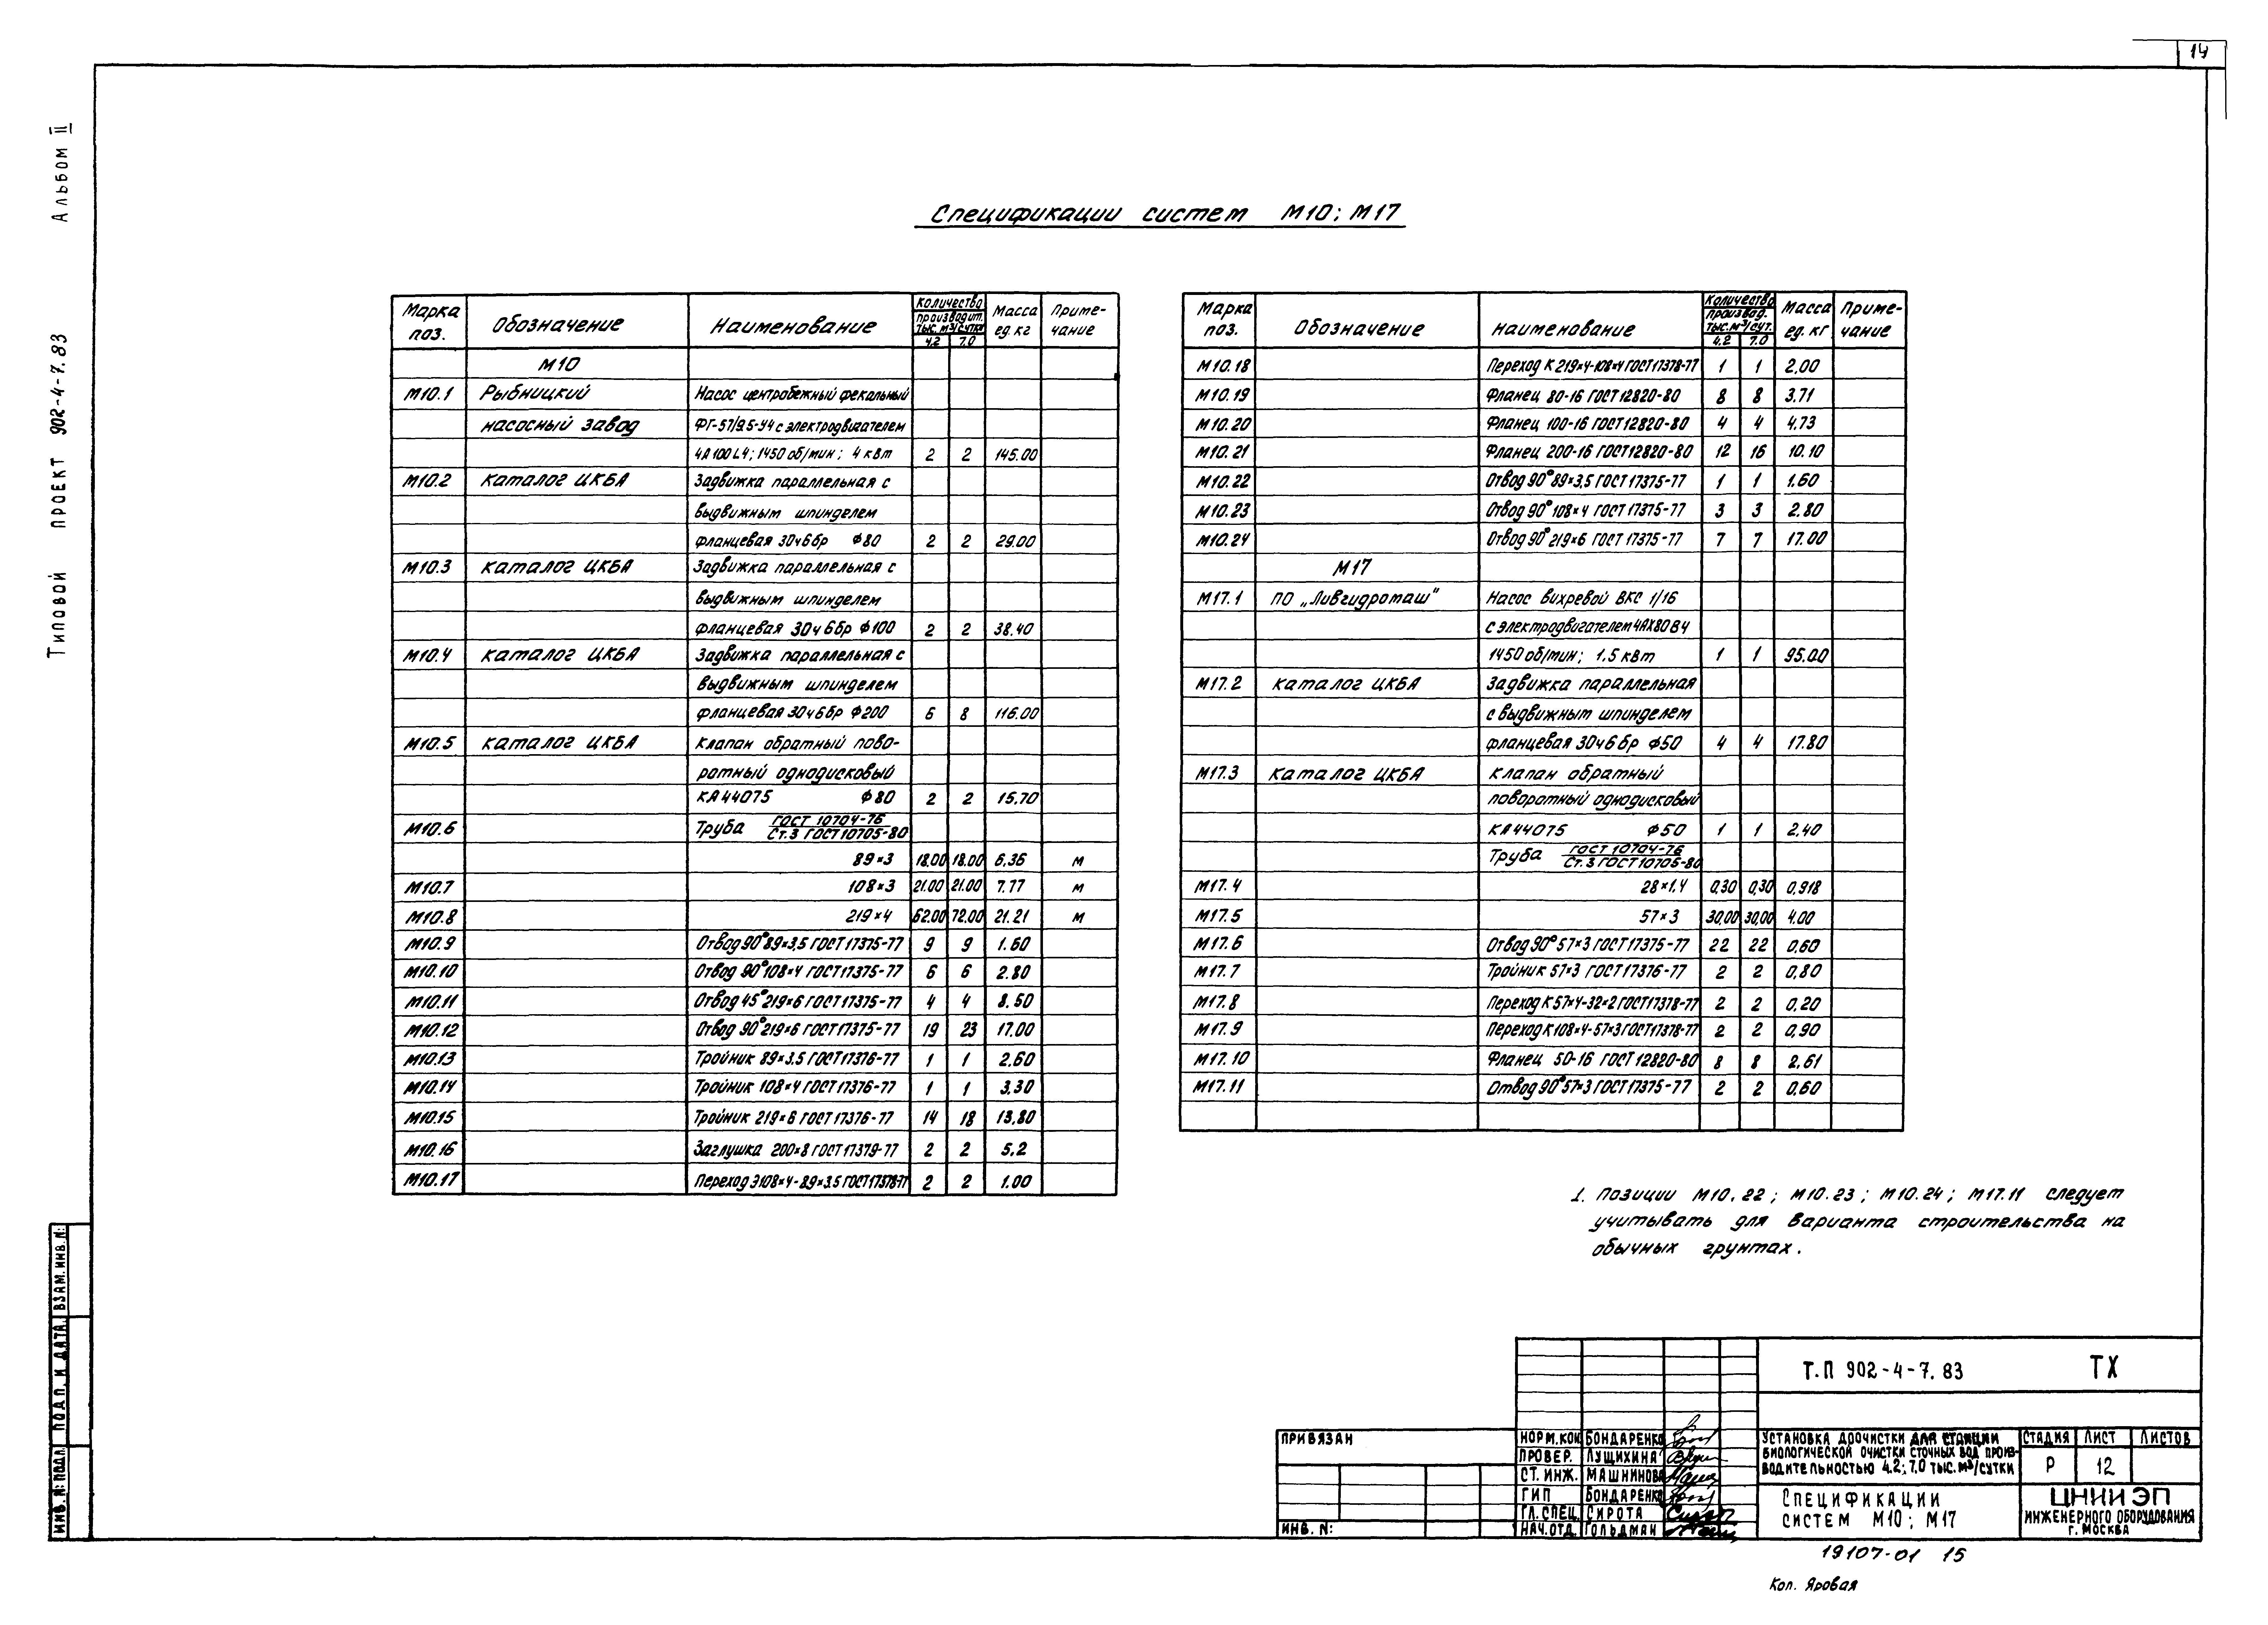 14
Альбом II
Типовой проект 902-4-7.83
Спецификации систем М10; М17
Марка поз. Обозначение Наименование Количество производит. тыс. м³/сутки 4.2 7.0 Масса ед. кг Примечание
М10
М10.1 Рыбницкий Насос центробежный фекальный
насосный завод ФГ-57/9.5-У4 с электродвигателем
4А100L4; 1450 об/мин; 4 квт 2 2 145.00
М10.2 каталог ЦКБА Задвижка параллельная с
выдвижным шпинделем
фланцевая 30ч6бр ф80 2 2 29.00
М10.3 каталог ЦКБА Задвижка параллельная с
выдвижным шпинделем
фланцевая 30ч6бр ф100 2 2 38.40
М10.4 каталог ЦКБА Задвижка параллельная с
выдвижным шпинделем
фланцевая 30ч6бр ф200 6 8 116.00
М10.5 каталог ЦКБА Клапан обратный пово-
ротный однодисковый
КА44075 ф80 2 2 15.70
М10.6 Труба ГОСТ 10704-76 / Ст.3 ГОСТ 10705-80
89×3 18.00 18.00 6.36 м
М10.7 108×3 21.00 21.00 7.77 м
М10.8 219×4 62.00 72.00 21.21 м
М10.9 Отвод 90° 89×3,5 ГОСТ 17375-77 9 9 1.60
М10.10 Отвод 90° 108×4 ГОСТ 17375-77 6 6 2.80
М10.11 Отвод 45° 219×6 ГОСТ 17375-77 4 4 8.50
М10.12 Отвод 90° 219×6 ГОСТ 17375-77 19 23 17.00
М10.13 Тройник 89×3.5 ГОСТ 17376-77 1 1 2.60
М10.14 Тройник 108×4 ГОСТ 17376-77 1 1 3.30
М10.15 Тройник 219×6 ГОСТ 17376-77 14 18 13.80
М10.16 Заглушка 200×8 ГОСТ 17379-77 2 2 5.2
М10.17 Переход Э108×4-89×3.5 ГОСТ 17378-77 2 2 1.00
Марка поз. Обозначение Наименование Количество производ. тыс. м³/сут. 4.2 7.0 Масса ед. кг Примечание
М10.18 Переход К 219×4-108×4 ГОСТ 17378-77 1 1 2.00
М10.19 Фланец 80-16 ГОСТ 12820-80 8 8 3.71
М10.20 Фланец 100-16 ГОСТ 12820-80 4 4 4.73
М10.21 Фланец 200-16 ГОСТ 12820-80 12 16 10.10
М10.22 Отвод 90° 89×3,5 ГОСТ 17375-77 1 1 1.60
М10.23 Отвод 90° 108×4 ГОСТ 17375-77 3 3 2.80
М10.24 Отвод 90° 219×6 ГОСТ 17375-77 7 7 17.00
М17
М17.1 ПО „Ливгидромаш" Насос вихревой ВКС 1/16
с электродвигателем 4АХ80В4
1450 об/мин; 1.5 квт 1 1 95.00
М17.2 каталог ЦКБА Задвижка параллельная
с выдвижным шпинделем
фланцевая 30ч6бр ф50 4 4 17.80
М17.3 каталог ЦКБА клапан обратный
поворотный однодисковый
КА44075 ф50 1 1 2,40
Труба ГОСТ 10704-76 / Ст.3 ГОСТ 10705-80
М17.4 28×1.4 0,30 0,30 0,918
М17.5 57×3 30,00 30,00 4.00
М17.6 Отвод 90° 57×3 ГОСТ 17375-77 22 22 0,60
М17.7 Тройник 57×3 ГОСТ 17376-77 2 2 0,80
М17.8 Переход К 57×4-32×2 ГОСТ 17378-77 2 2 0,20
М17.9 Переход К108×4-57×3 ГОСТ 17378-77 2 2 0,90
М17.10 Фланец 50-16 ГОСТ 12820-80 8 8 2,61
М17.11 Отвод 90° 57×3 ГОСТ 17375-77 2 2 0,60
1. Позиции М10.22; М10.23; М10.24; М17.11 следует
учитывать для варианта строительства на
обычных грунтах.
ИНВ. №: ПОДЛ. ПОДП. И ДАТА. ВЗАМ. ИНВ. №:
ПРИВЯЗАН
ИНВ. №:
НОРМ.КОН БОНДАРЕНКО
ПРОВЕР. ЛУЩИХИНА
СТ. ИНЖ. МАШНИНОВА
ГИП БОНДАРЕНКО
ГЛ. СПЕЦ. СИРОТА
НАЧ.ОТД. ГОЛЬДМАН
Т.П 902-4-7.83 ТХ
УСТАНОВКА ДООЧИСТКИ ДЛЯ СТАНЦИИ
БИОЛОГИЧЕСКОЙ ОЧИСТКИ СТОЧНЫХ ВОД ПРОИЗ-
ВОДИТЕЛЬНОСТЬЮ 4.2; 7.0 ТЫС. М³/СУТКИ
СТАДИЯ ЛИСТ ЛИСТОВ
Р 12
СПЕЦИФИКАЦИИ
СИСТЕМ М10; М17
ЦНИИЭП
ИНЖЕНЕРНОГО ОБОРУДОВАНИЯ
Г. МОСКВА
19107-01 15
Коп. Яровая